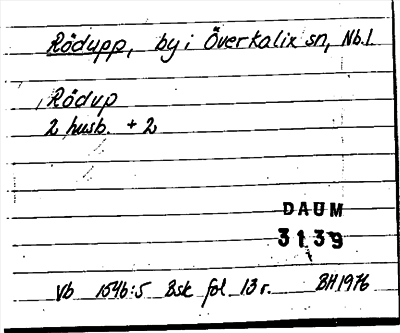 Rödupp, by i Överkalix sn, Nb.l.
Rödup
2 husb. + 2
DAUM
3139
Vb 1546:5 Bsk fol 13r. BH 1976